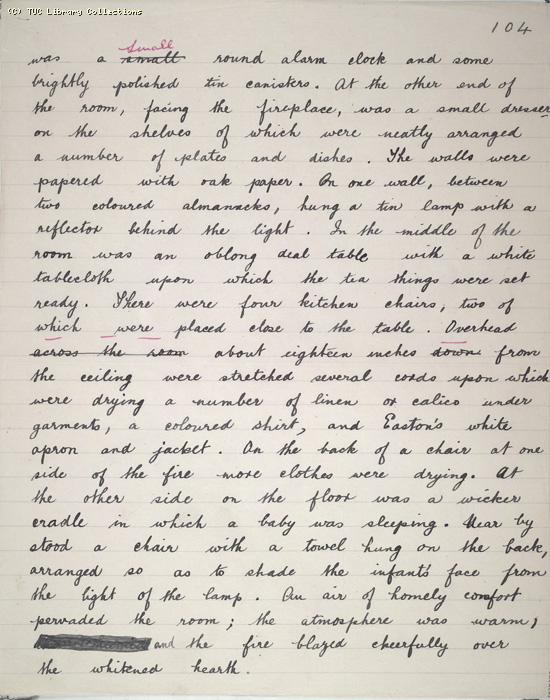 (C) TUC Library Collections
104
small
was a small round alarm clock and some
brightly polished tin canisters. At the other end of
the room, facing the fireplace, was a small dresser
on the shelves of which were neatly arranged
a number of plates and dishes. The walls were
papered with oak paper. On one wall, between
two coloured almanacks, hung a tin lamp with a
reflector behind the light. In the middle of the
room was an oblong deal table with a white
tablecloth upon which the tea things were set
ready. There were four kitchen chairs, two of
which were placed close to the table. Overhead
across the room about eighteen inches down from
the ceiling were stretched several cords upon which
were drying a number of linen or calico under
garments, a coloured shirt, and Easton's white
apron and jacket. On the back of a chair at one
side of the fire more clothes were drying. At
the other side on the floor was a wicker
cradle in which a baby was sleeping. Near by
stood a chair with a towel hung on the back,
arranged so as to shade the infant's face from
the light of the lamp. An air of homely comfort
pervaded the room; the atmosphere was warm,
and the fire blazed cheerfully over
the whitened hearth.